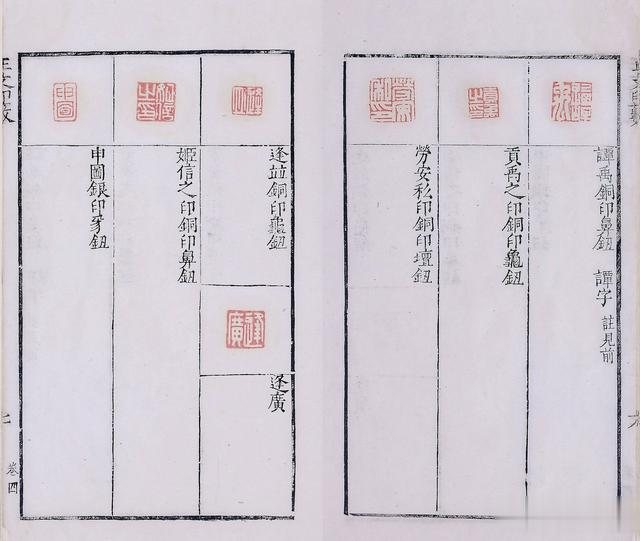 譚禹銅印鼻鈕 譚字 註見前
貢禹之印銅印龜鈕
勞安私印銅印壇鈕
逢並銅印龜鈕
逢廣
逢廣
姬信之印銅印鼻鈕
申圖銀印牙鈕
卷四